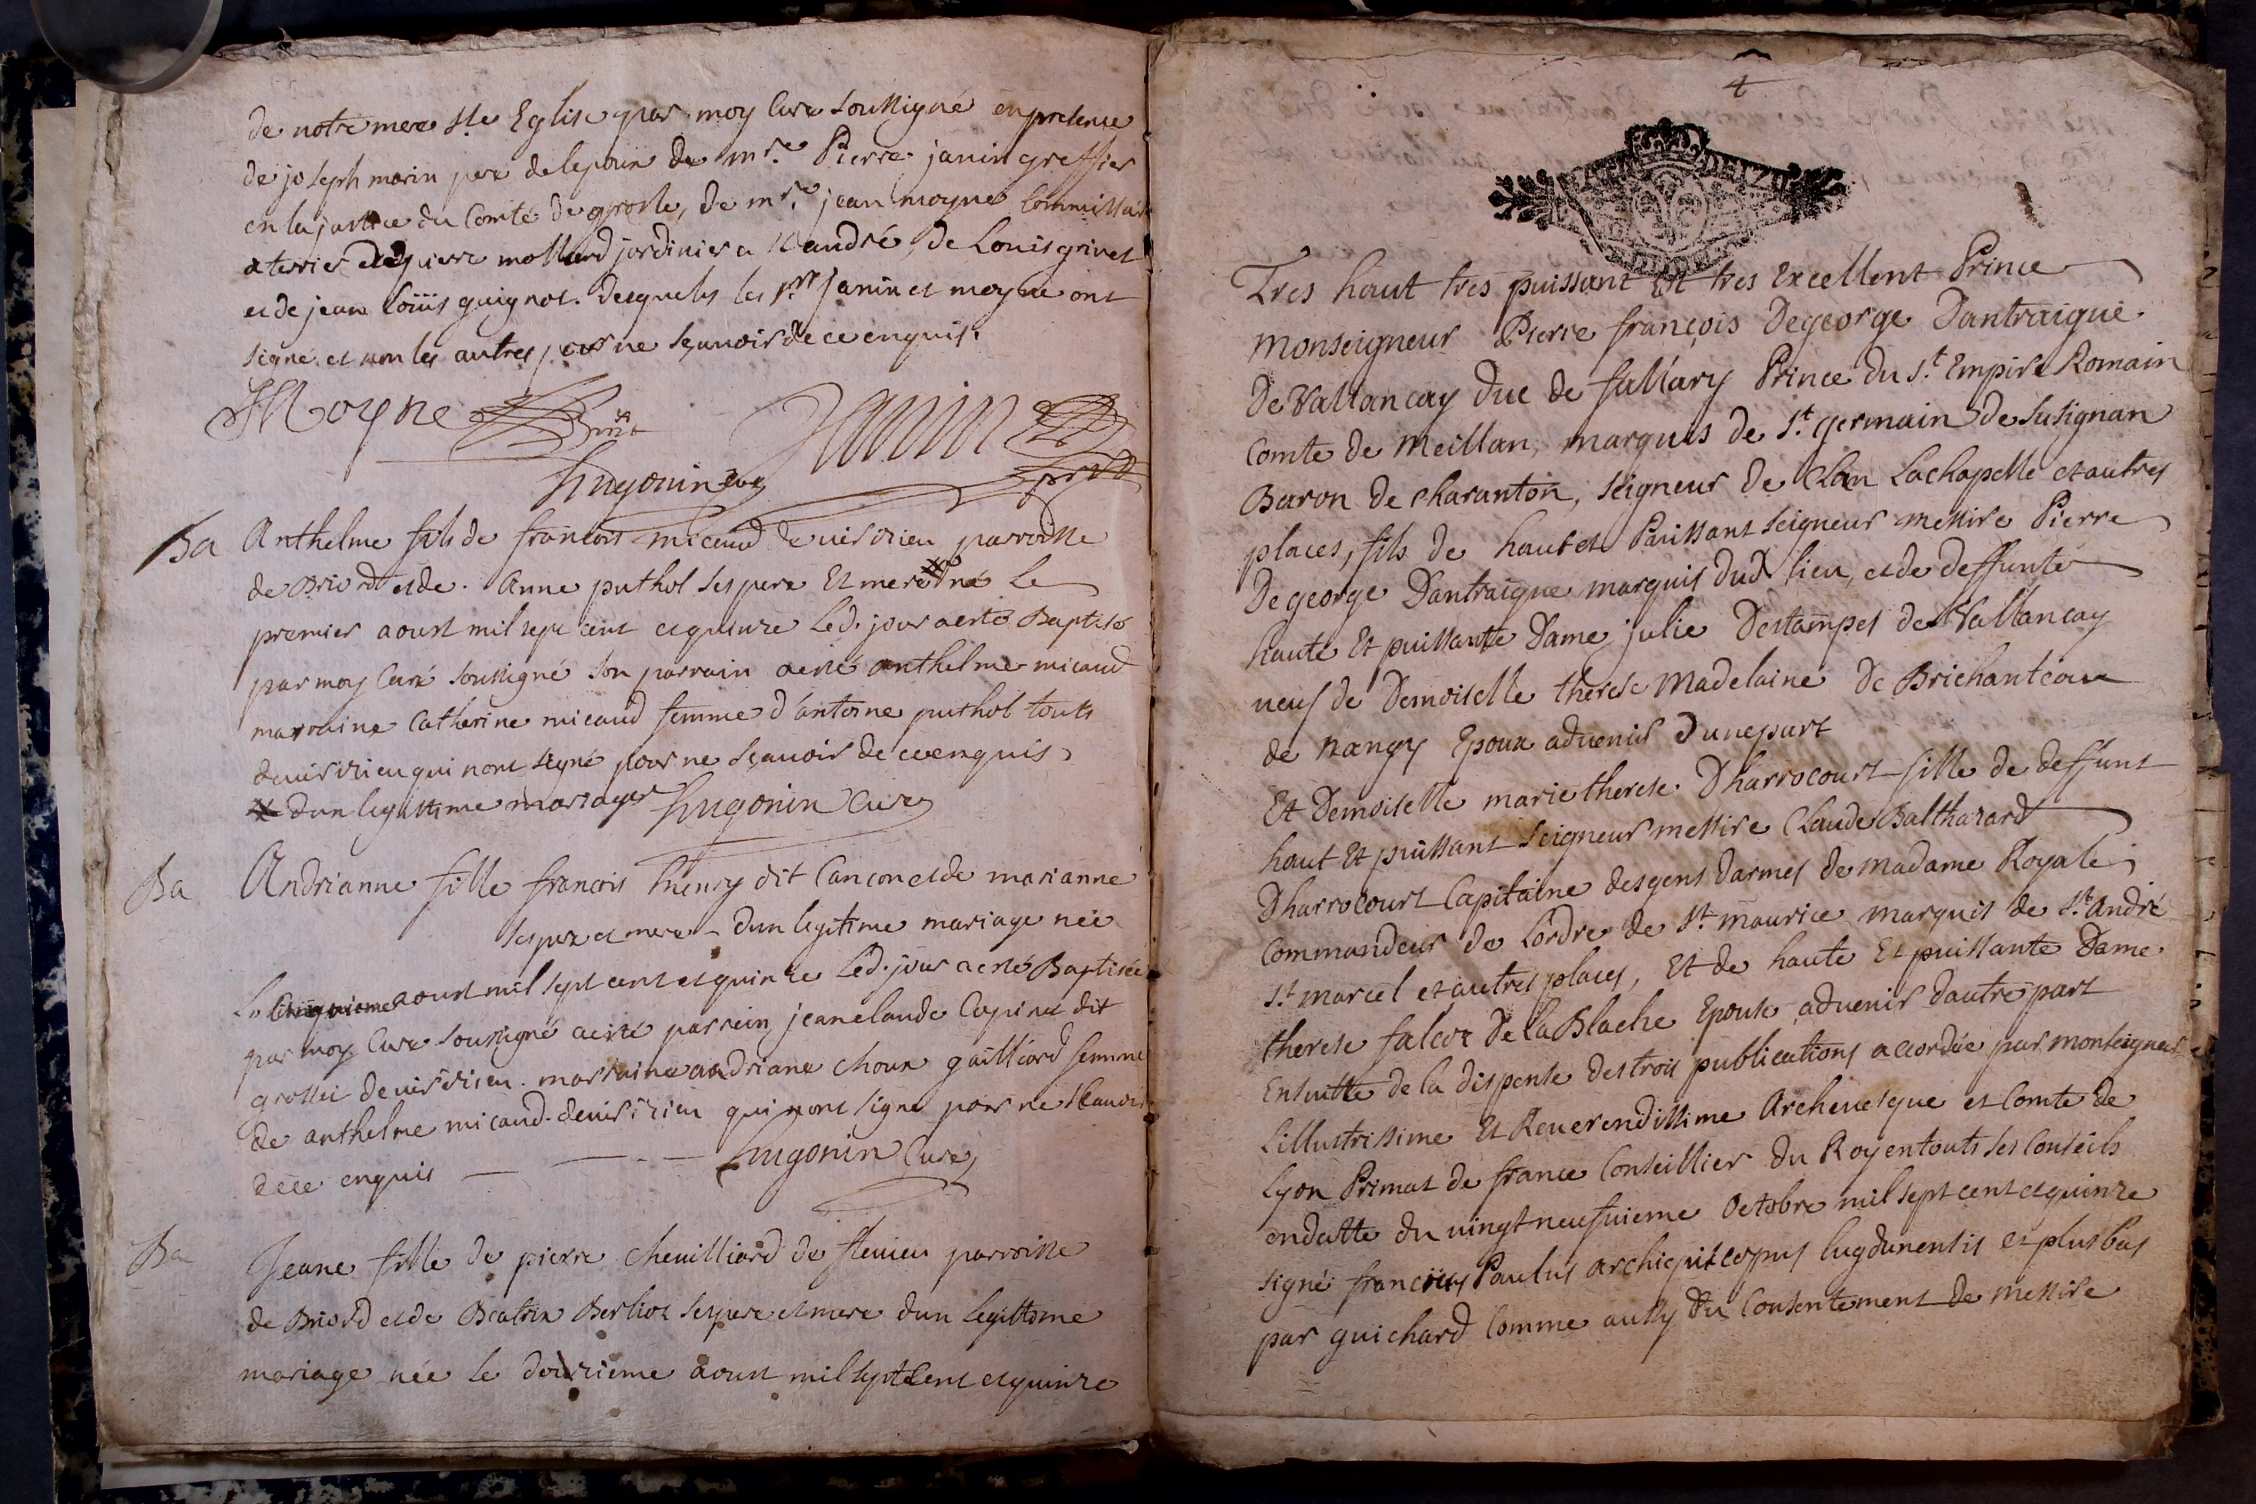 de notre mere Ste Eglise par moy Curé soussigné en presence
de joseph morin pere de lepoux de mre. Pierre janin greffier
en la justice du Comté de groslee, de mre. jean moyne Commissaire
a terrier de pierre mollard jardinier a St andré, de Louis grinet
et de jean Loüis guignot. desquels les Srs janin et moyne ont
signé. et non les autres pour ne sçauoir de ce enquis.
JMoyne Janin
hugonin Curé
Ba Anthelme fils de francois micaud de uersirieu parroisse
de Briord et de. Anne puthol ses pere Et mere * né Le
premier aoust mil sept cent et quinze Led. jour a esté Baptisé
par moy Curé soussigné son parrain a esté anthelme micaud
marraine Catherine micaud femme d'antoine puthol touts
de uersirieu qui nont signé pour ne Sçauoir de ce enquis
* dun legittime mariage hugonin Curé
Ba Andrianne fille francois thenry dit Cancon et de marianne
ses pere et mere - dun legitime mariage née
Le Cinquieme aoust mil sept cent et quinze Led. jour a esté Baptisée
par moy Curé soussigné a esté parrein jean claude Capinet dit
grosset de uersirieu. marraine andriane Choux gailliard femme
de anthelme micaud. de uersirieu qui nont signé pour ne scauoir
dece enquis hugonin Curé
Ba Jeane fille de pierre cheuilliard de fleuieu parroisse
de Briord et de Beatrix Berliot ses pere et mere dun legittime
mariage née le douzieme aoust mil sept Cent et quinze
4
Tres haut tres puissant Et tres Excellent Prince
Monseigneur Pierre françois Degeorge Dantraigue
De Vallancay Duc de fallary Prince du St. Empire Romain
Comte de Meillan, marquis de St. germain de Lusignan
Baron de Charanton, seigneur de Clan Lachapelle et autres
places, fils de haut et Puissant seigneur messire Pierre
Degeorge Dantraigue marquis dud. lieu, et de deffunte
haute Et puissante Dame julie Destampes de Vallancay
ueuf de Demoiselle therese Madelaine De Brichanteau
de nangy Epoux aduenir Dunepart
Et Demoiselle marie therese Dharrocourt fille de deffunt
haut Et puissant Seigneur messire Claude Balthazard
Dharrocourt Capitaine des gens darmes de Madame Royale,
Commandeur de Lordre de St. maurice marquis de St. André
St. marcel et autres places, Et de haute Et puissante Dame
therese falcoz De la Blache Epouse aduenir dautre part
Ensuitte de la dispense des trois publications accordée par monseigneur
Lillustrissime Et Reuerendissime Archeuesque et Comte de
Lyon Primat de france Conseillier du Roy en touts ses Conseils
en datte du uingt neufuieme Octobre mil sept cent et quinze
signé franciscus Paulus archiepiscopus lugdunensis et plus bas
par guichard Comme aussy du Consentement de messire